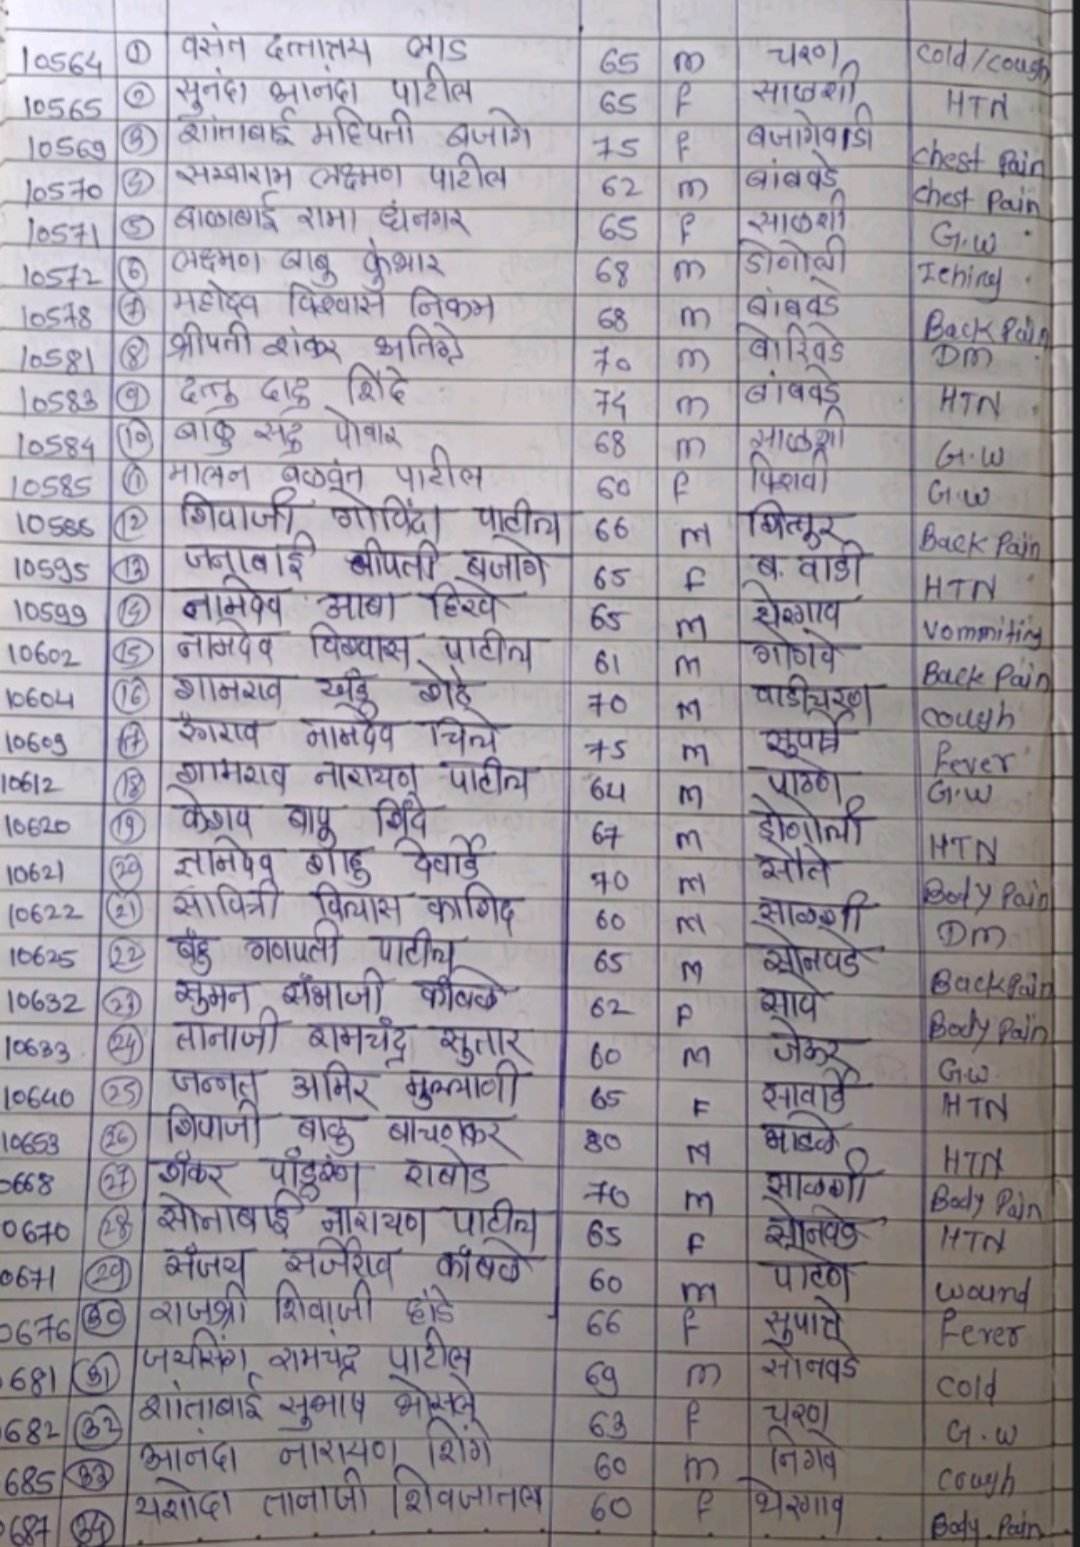 10564 ① वसंत दत्तात्रय लाड 65 m चरण Cold/cough
10565 ② सुनंदा आनंदा पाटील 65 F साळशी HTN
10569 ③ शांताबाई महिपती बजागे 75 F बजागेवाडी Chest Pain
10570 ④ सखाराम लक्ष्मण पाटील 62 m बांबवडे Chest Pain
10571 ⑤ बाळाबाई रामा धनगर 65 F साळशी G.W
10572 ⑥ लक्ष्मण बाबु कुंभार 68 m डोणोली Iching
10578 ⑦ महादेव विश्वास निकम 68 m बांबवडे Back Pain
10581 ⑧ श्रीपती शंकर 70 m बोरिवडे DM
10583 ⑨ दत्तु दादु शिंदे 74 m बांबवडे HTN
10584 ⑩ बाळु सदु पोवार 68 m साळशी G.W
10585 ⑪ मालन बळवंत पाटील 60 F पिशवी G.W
10586 ⑫ शिवाजी गोविंदा पाटील 66 M शित्तूर Back Pain
10595 ⑬ जनाबाई श्रीपती बजागे 65 F ब. वाडी HTN
10599 ⑭ नामदेव आबा हिरवे 65 M थेरगाव Vommiting
10602 ⑮ नामदेव विश्वास पाटील 61 M गोगवे Back Pain
10604 ⑯ शामराव खंडु 70 M वाडीचरण cough
10609 ⑰ रंगराव नामदेव चिले 75 M सुपात्रे Fever
10612 ⑱ शामराव नारायण पाटील 64 M पाटणे G.W
10620 ⑲ केशव बापू शिंदे 67 M डोणोली HTN
10621 ⑳ ज्ञानदेव शाहु देवार्डे 70 M सोते Body Pain
10622 ㉑ सावित्री विलास काशिद 60 M साळशी DM
10625 ㉒ बंडु गणपती पाटील 65 M सोनवडे Back Pain
10632 ㉓ सुमन संभाजी कांबळे 62 F सावे Body Pain
10633 ㉔ तानाजी रामचंद्र सुतार 60 M जेऊर G.W.
10640 ㉕ जन्नत अमिर मुल्लाणी 65 F सावर्डे HTN
10653 ㉖ शिवाजी बाळु बाचणकर 80 M भाडळे HTN
0668 ㉗ शंकर पांडुरंग राबोड 70 M साळशी Body Pain
0670 ㉘ सोनाबाई नारायण पाटील 65 F सोनवडे HTN
0671 ㉙ संजय सर्जेराव कांबळे 60 M पाटणे wound
0676 ㉚ राजश्री शिवाजी हांडे 66 F सुपात्रे Fever
681 ㉛ जयसिंग रामचंद्र पाटील 69 m सोनवडे Cold
682 ㉜ शांताबाई सुभाष भोसले 63 F चरण G.W
685 ㉝ आनंदा नारायण शिंगे 60 m निगवे Cough
687 ㉞ यशोदा तानाजी 60 F थेरगाव Body Pain